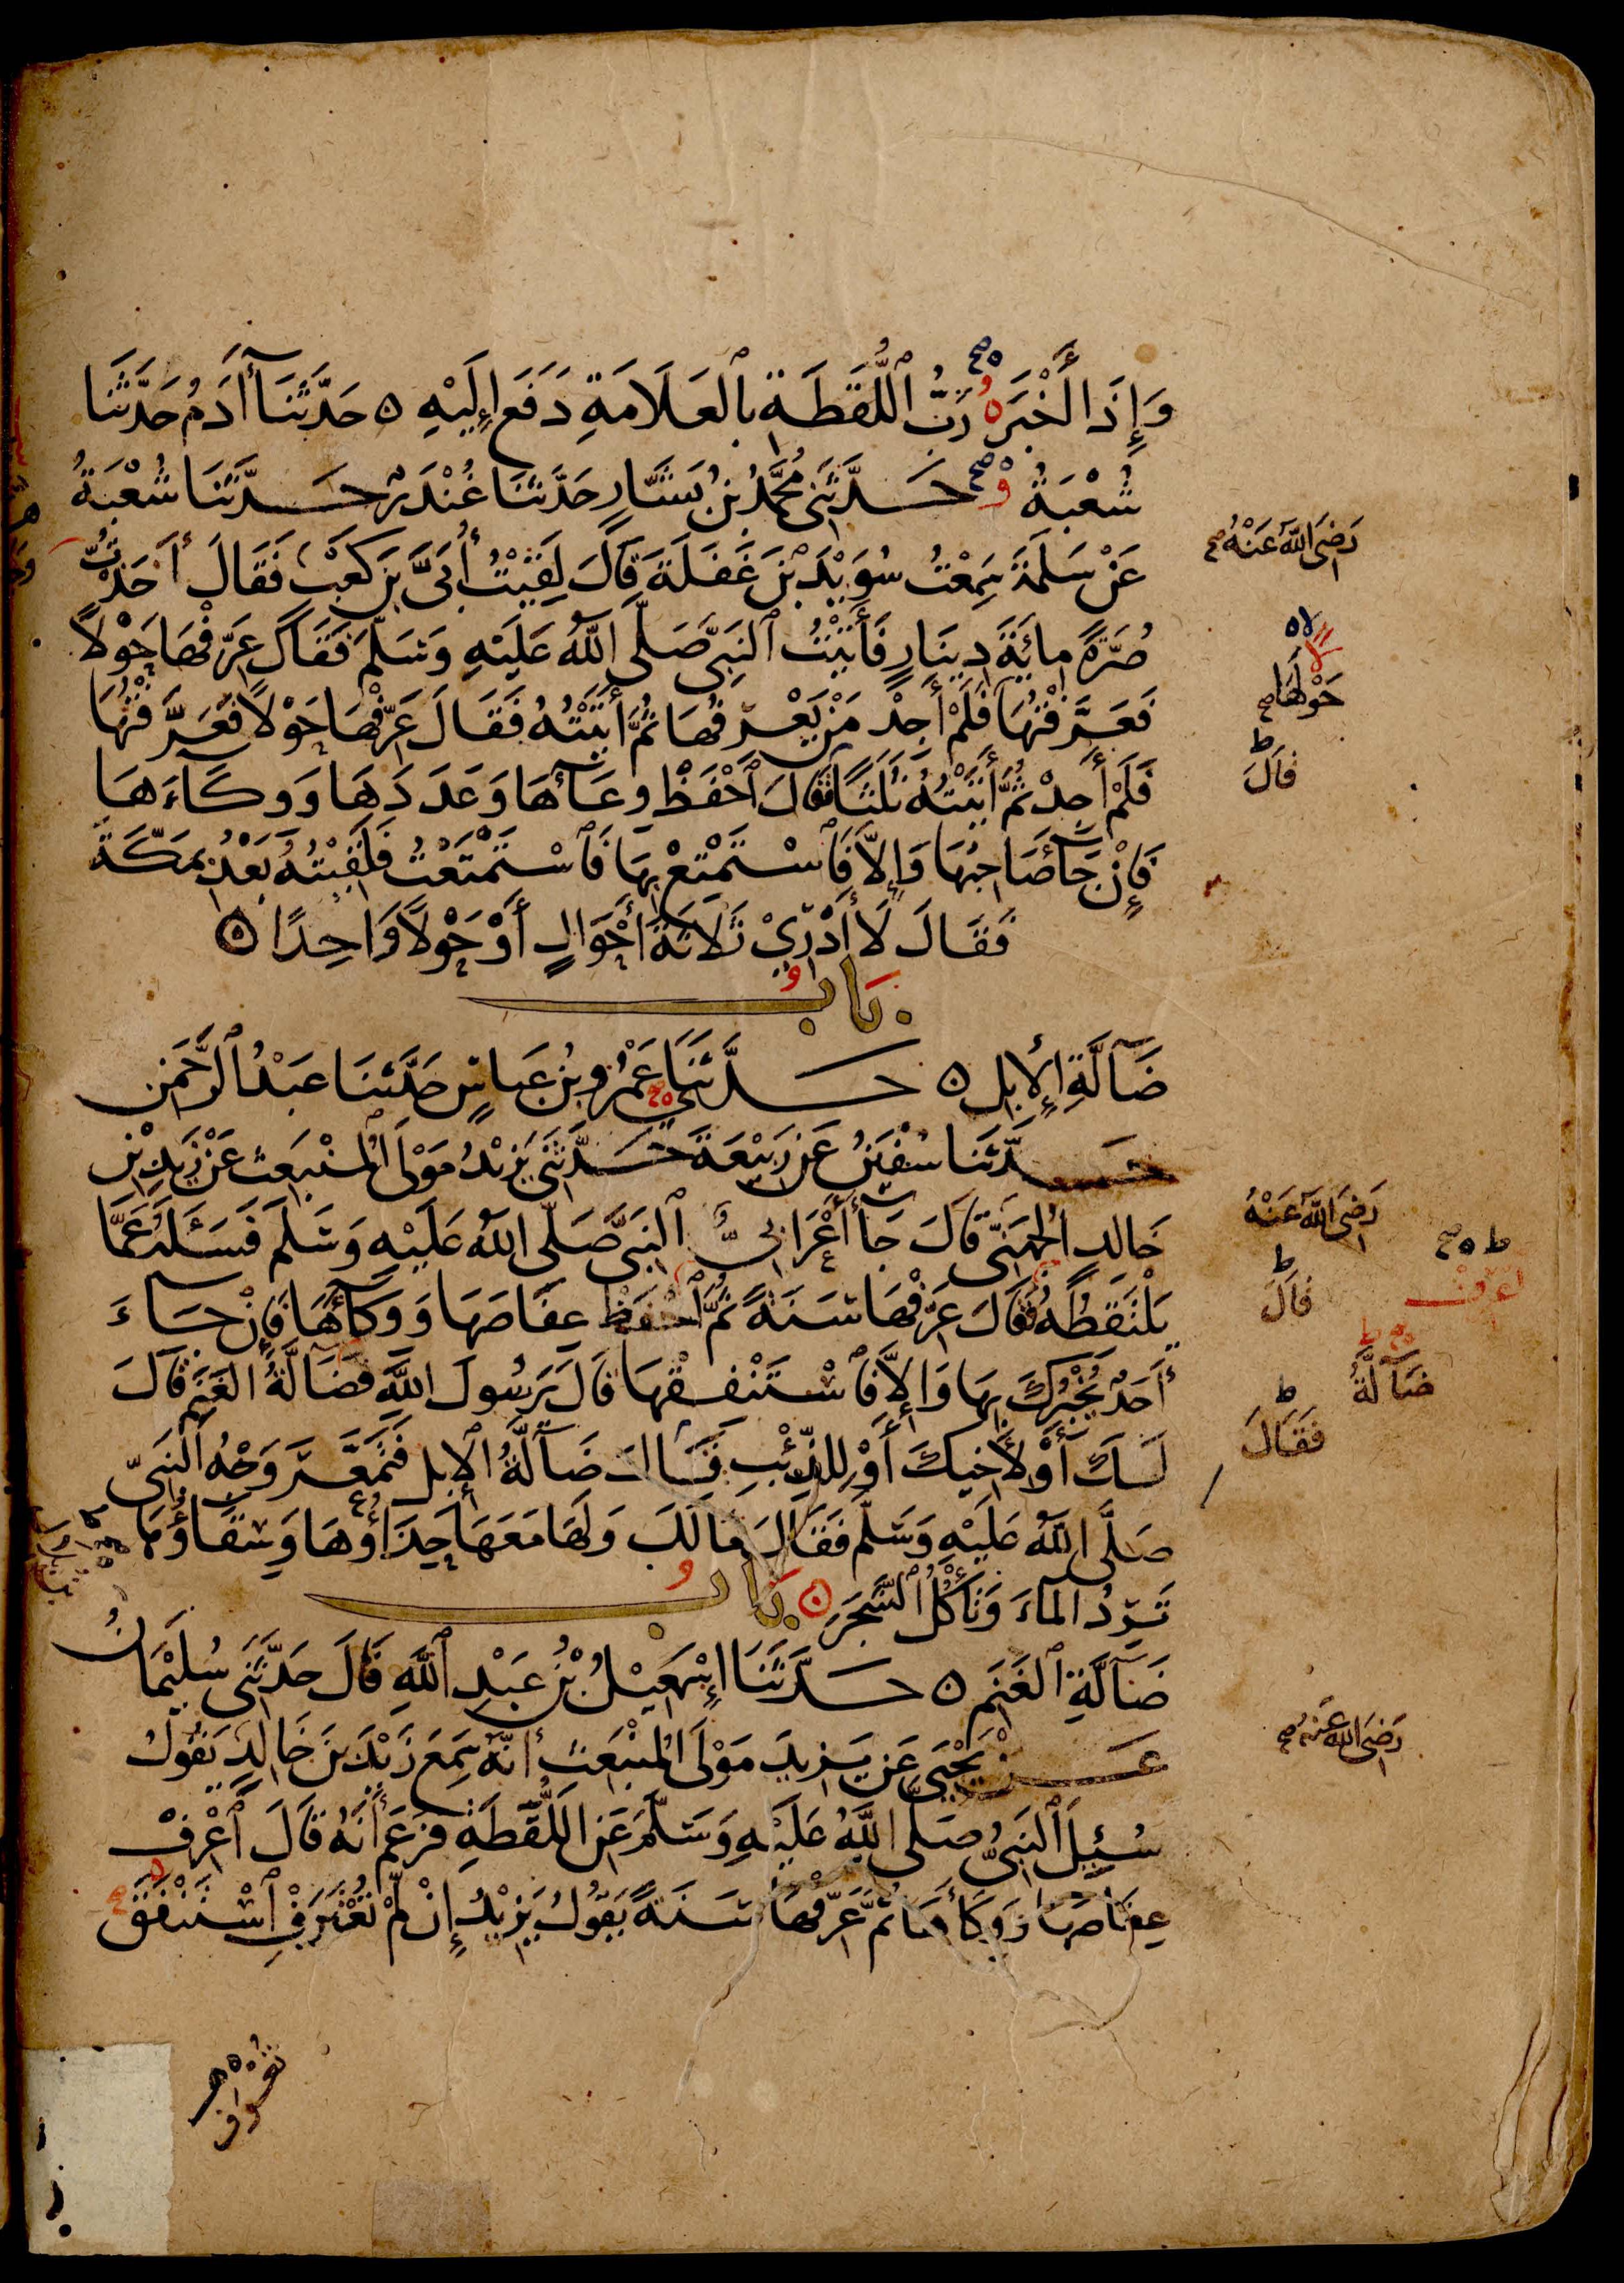 وَإِذَا أَخْبَرَهُ رَبُّ ٱللُّقَطَةِ بِٱلْعَلَامَةِ دَفَعَ إِلَيْهِ ه حَدَّثَنَا آدَمُ حَدَّثَنَا
شُعْبَةُ وحَدَّثَنِي مُحَمَّدُ بْنُ بَشَّارٍ حَدَّثَنَا غُنْدَرٌ حَدَّثَنَا شُعْبَةُ
عَنْ سَلَمَةَ سَمِعْتُ سُوَيْدَ بْنَ غَفَلَةَ قَالَ لَقِيتُ أُبَيَّ بْنَ كَعْبٍ فَقَالَ أَخَذْتُ
رَضِيَ اللهُ عَنْهُ صح
صُرَّةً مِائَةَ دِينَارٍ فَأَتَيْتُ ٱلنَّبِيَّ صَلَّى اللهُ عَلَيْهِ وَسَلَّمَ فَقَالَ عَرِّفْهَا حَوْلًا
فَعَرَّفْتُهَا فَلَمْ أَجِدْ مَنْ يَعْرِفُهَا ثُمَّ أَتَيْتُهُ فَقَالَ عَرِّفْهَا حَوْلًا فَعَرَّفْتُهَا
حَوْلَهَا صح
فَلَمْ أَجِدْ ثُمَّ أَتَيْتُهُ ثَلَثًا فَقَالَ ٱحْفَظْ وِعَآءَهَا وَعَدَدَهَا وَوِكَآءَهَا
ط
قَالَ
فَإِنْ جَآءَ صَاحِبُهَا وَإِلَّا فَٱسْتَمْتِعْ بِهَا فَٱسْتَمْتَعْتُ فَلَقِيتُهُ بَعْدُ بِمَكَّةَ
فَقَالَ لَا أَدْرِي ثَلَاثَةَ أَحْوَالٍ أَوْ حَوْلًا وَاحِدًا ه
بَابُ
ضَآلَّةِ الْإِبِلِ ه حَدَّثَنَا عَمْرُو بْنُ عَبَّاسٍ حَدَّثَنَا عَبْدُ ٱلرَّحْمَنِ
حَدَّثَنَا سُفْيَنُ عَنْ رَبِيعَةَ حَدَّثَنِي يَزِيدُ مَوْلَى الْمُنْبَعِثِ عَنْ زَيْدِ بْنِ
خَالِدٍ الْجُهَنِيِّ قَالَ جَآءَ أَعْرَابِيٌّ ٱلنَّبِيَّ صَلَّى اللهُ عَلَيْهِ وَسَلَّمَ فَسَأَلَهُ عَمَّا
رَضِيَ اللهُ عَنْهُ
يَلْتَقِطُهُ فَقَالَ عَرِّفْهَا سَنَةً ثُمَّ ٱحْفَظْ عِفَاصَهَا وَوِكَآءَهَا فَإِنْ جَاءَ
ط
قَالَ
ط ه صح
اعْرِفْ
أَحَدٌ يُخْبِرُكَ بِهَا وَإِلَّا فَٱسْتَنْفِقْهَا قَالَ يَرَسُولَ اللَّهِ فَضَالَّةُ الْغَنَمِ قَالَ
ضَآلَّةُ
لَكَ أَوْ لِأَخِيكَ أَوْ لِلذِّئْبِ قَالَ ضَآلَّةُ الْإِبِلِ فَتَمَعَّرَ وَجْهُ ٱلنَّبِيِّ
ط
فَقَالَ
صَلَّى اللهُ عَلَيْهِ وَسَلَّمَ فَقَالَ مَا لَكَ وَلَهَا مَعَهَا حِذَاؤُهَا وَسِقَاؤُهَا
تَرِدُ الْمَاءَ وَتَأْكُلُ ٱلشَّجَرَ ه بَابُ
ضَآلَّةِ ٱلْغَنَمِ ه حَدَّثَنَا إِسْمَعِيلُ بْنُ عَبْدِ ٱللَّهِ قَالَ حَدَّثَنِي سُلَيْمَانُ
عَنْ يَحْيَى عَنْ يَزِيدَ مَوْلَى الْمُنْبَعِثِ أَنَّهُ سَمِعَ زَيْدَ بْنَ خَالِدٍ يَقُولُ
رَضِيَ اللهُ عَنْهُ صح
سُئِلَ ٱلنَّبِيُّ صَلَّى اللَّهُ عَلَيْهِ وَسَلَّمَ عَنِ اللُّقَطَةِ فَزَعَمَ أَنَّهُ قَالَ ٱعْرِفْ
عِفَاصَهَا وَوِكَاءَهَا ثُمَّ عَرِّفْهَا سَنَةً يَقُولُ يَزِيدُ إِنْ لَمْ تُعْتَرَفِ ٱسْتَنْفَقَ